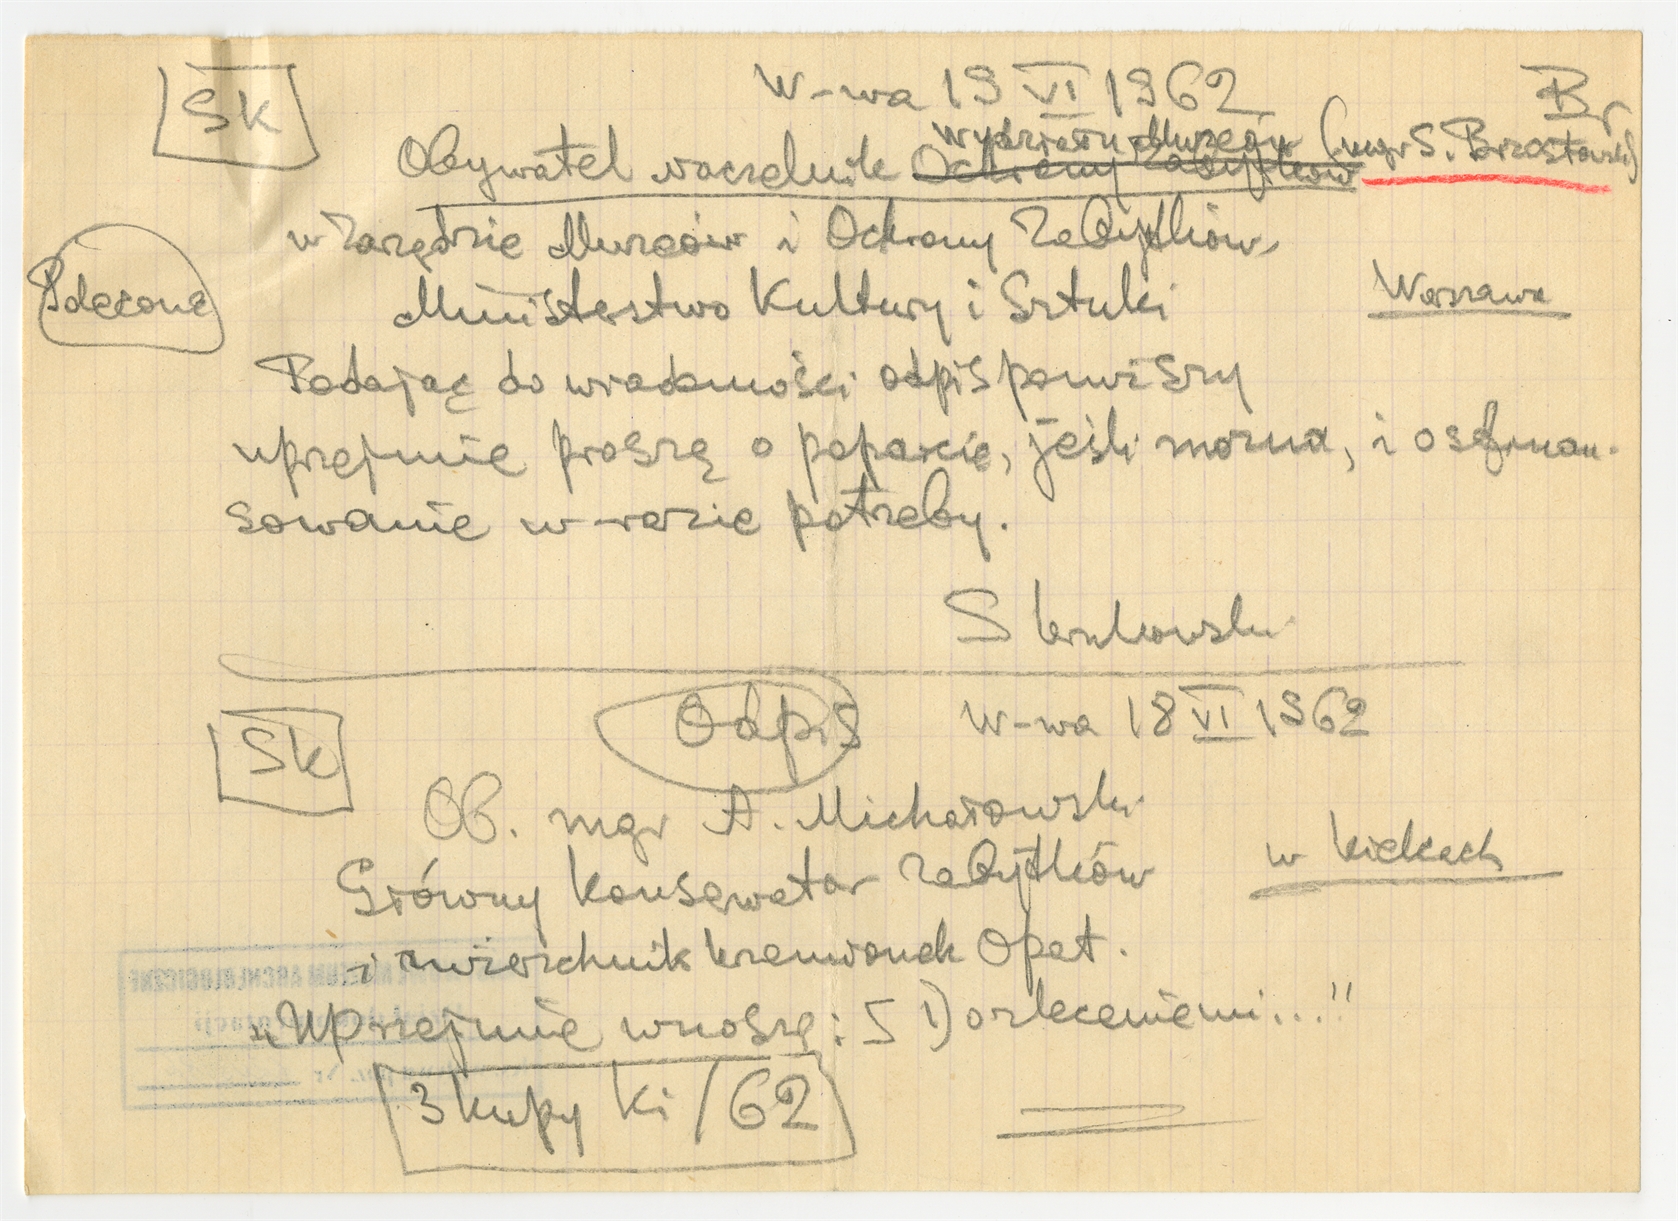 SK
W-wa 19 VI 1962
Br
Wydziału Muzeów (mgr S. Brzostowski)
Obywatel naczelnik Ochrony Zabytków
w Zarządzie Muzeów i Ochrony Zabytków,
Polecone
Ministerstwo Kultury i Sztuki
Warszawa
Podając do wiadomości odpis powyższy
uprzejmie proszę o poparcie, jeśli można, i o sfinan-
sowanie w razie potrzeby.
S Krukowski
Odpis
W-wa 18 VI 1962
SK
Ob. mgr A. Michałowski
Główny Konserwator Zabytków
w Kielcach
i zwierzchnik krzemionek Opat.
"Uprzejmie wnoszę: 1) o zleceniemi...."
3 kupy Ki/62